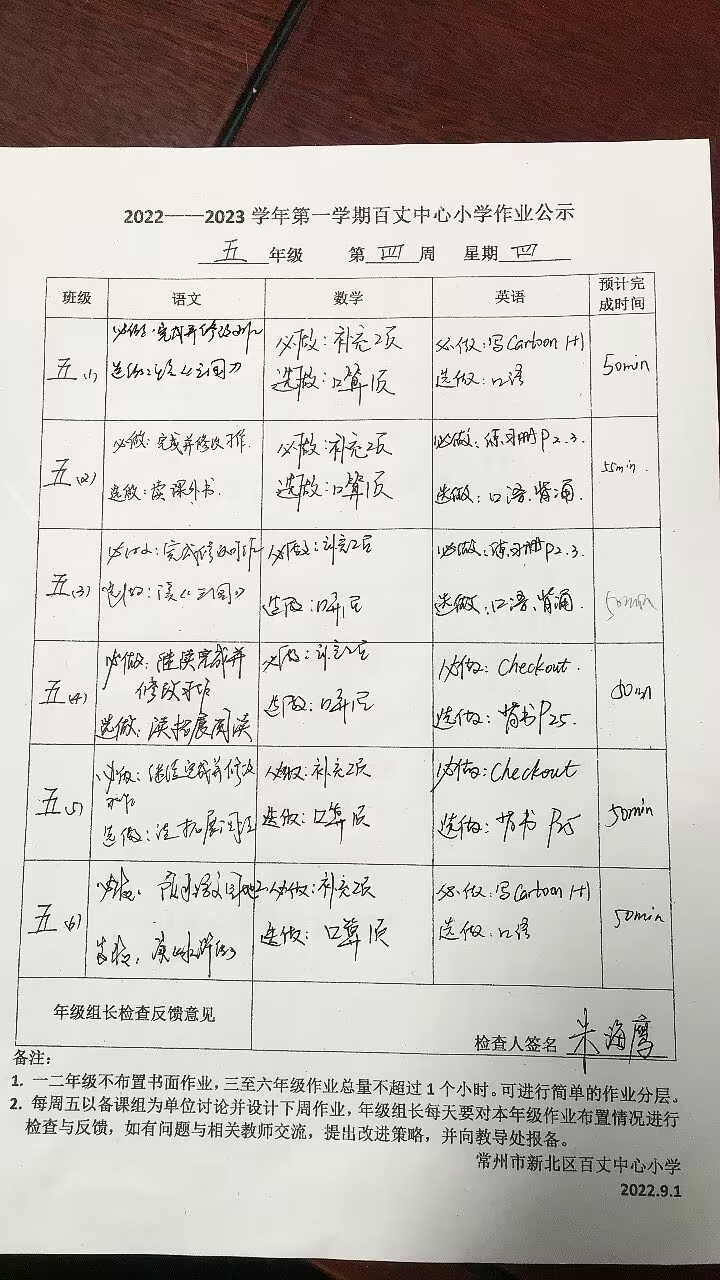 2022——2023 学年第一学期百丈中心小学作业公示
五 年级 第 四 周 星期 四
班级 语文 数学 英语 预计完成时间
五(1)
必做：完成并修改习作
选做：读《三国》
必做：补充2页
选做：口算1页
必做：写Cartoon
选做：口语
50min
五(2)
必做：完成并修改习作.
选做：读课外书.
必做：补充2页
选做：口算1页
必做：练习册P2.3.
选做：口语、背诵.
55min.
五(3)
必做：完成修改习作
选做：读《三国》
必做：补充2页
选做：口算1页
必做：练习册P2.3.
选做：口语、背诵.
50min
五(4)
必做：继续完成并
修改习作
选做：读拓展阅读
必做：补充2页
选做：口算1页
必做：Checkout.
选做：背书P25.
五(5)
必做：继续完成并修改
习作
选做：读拓展阅读
必做：补充2页
选做：口算1页
必做：Checkout
选做：背书P25
50min
五(6)
必做：补充2页
选做：口算1页
必做：写Cartoon
选做：口语
50min
年级组长检查反馈意见
检查人签名 朱海鹰
备注：
1. 一二年级不布置书面作业，三至六年级作业总量不超过 1 个小时。可进行简单的作业分层。
2. 每周五以备课组为单位讨论并设计下周作业，年级组长每天要对本年级作业布置情况进行
检查与反馈，如有问题与相关教师交流，提出改进策略，并向教导处报备。
常州市新北区百丈中心小学
2022.9.1